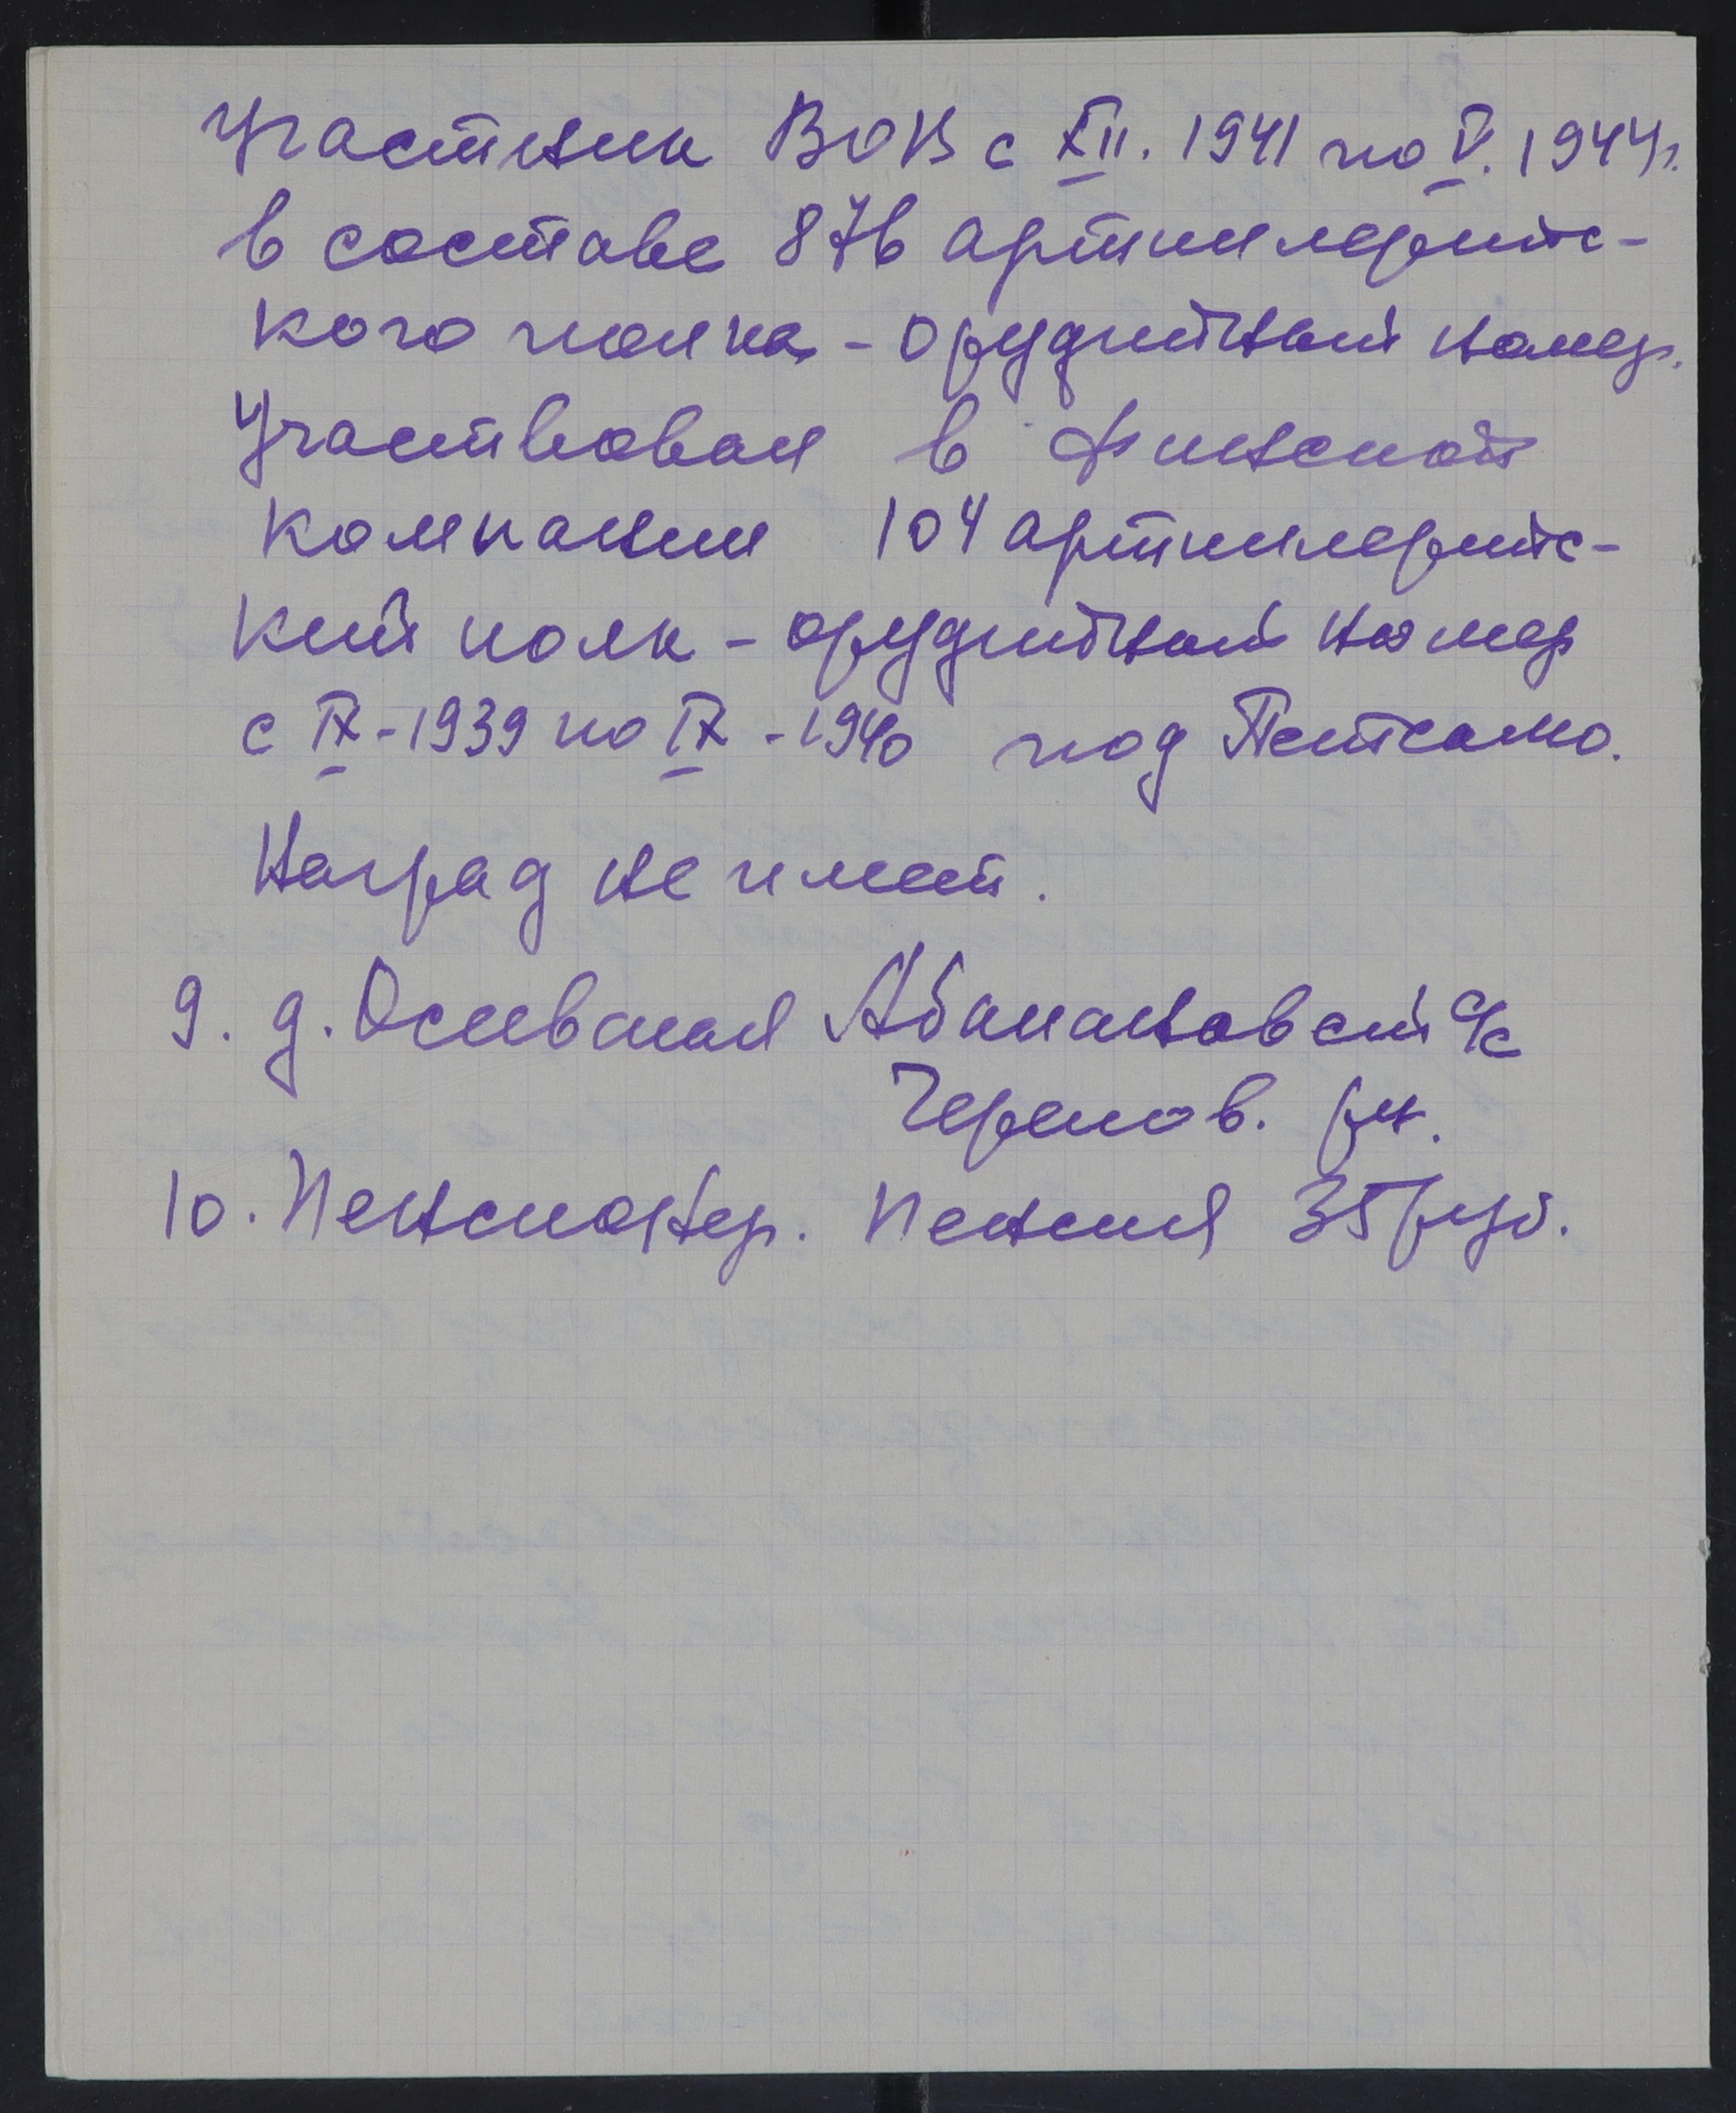 Участник ВОВ с XII. 1941 по V. 1944г.
в составе 876 артиллерийс-
кого полка - орудийный номер.
Участвовал в Финской
компании 104 артиллерийс-
кий полк - орудийный номер
с IX - 1939 по IX - 1940 под Петсамо.
Наград не имеет.
9. д. Осиевская Абакановский с/с
Черепов. рн.
10. Пенсионер. Пенсия 35 руб.